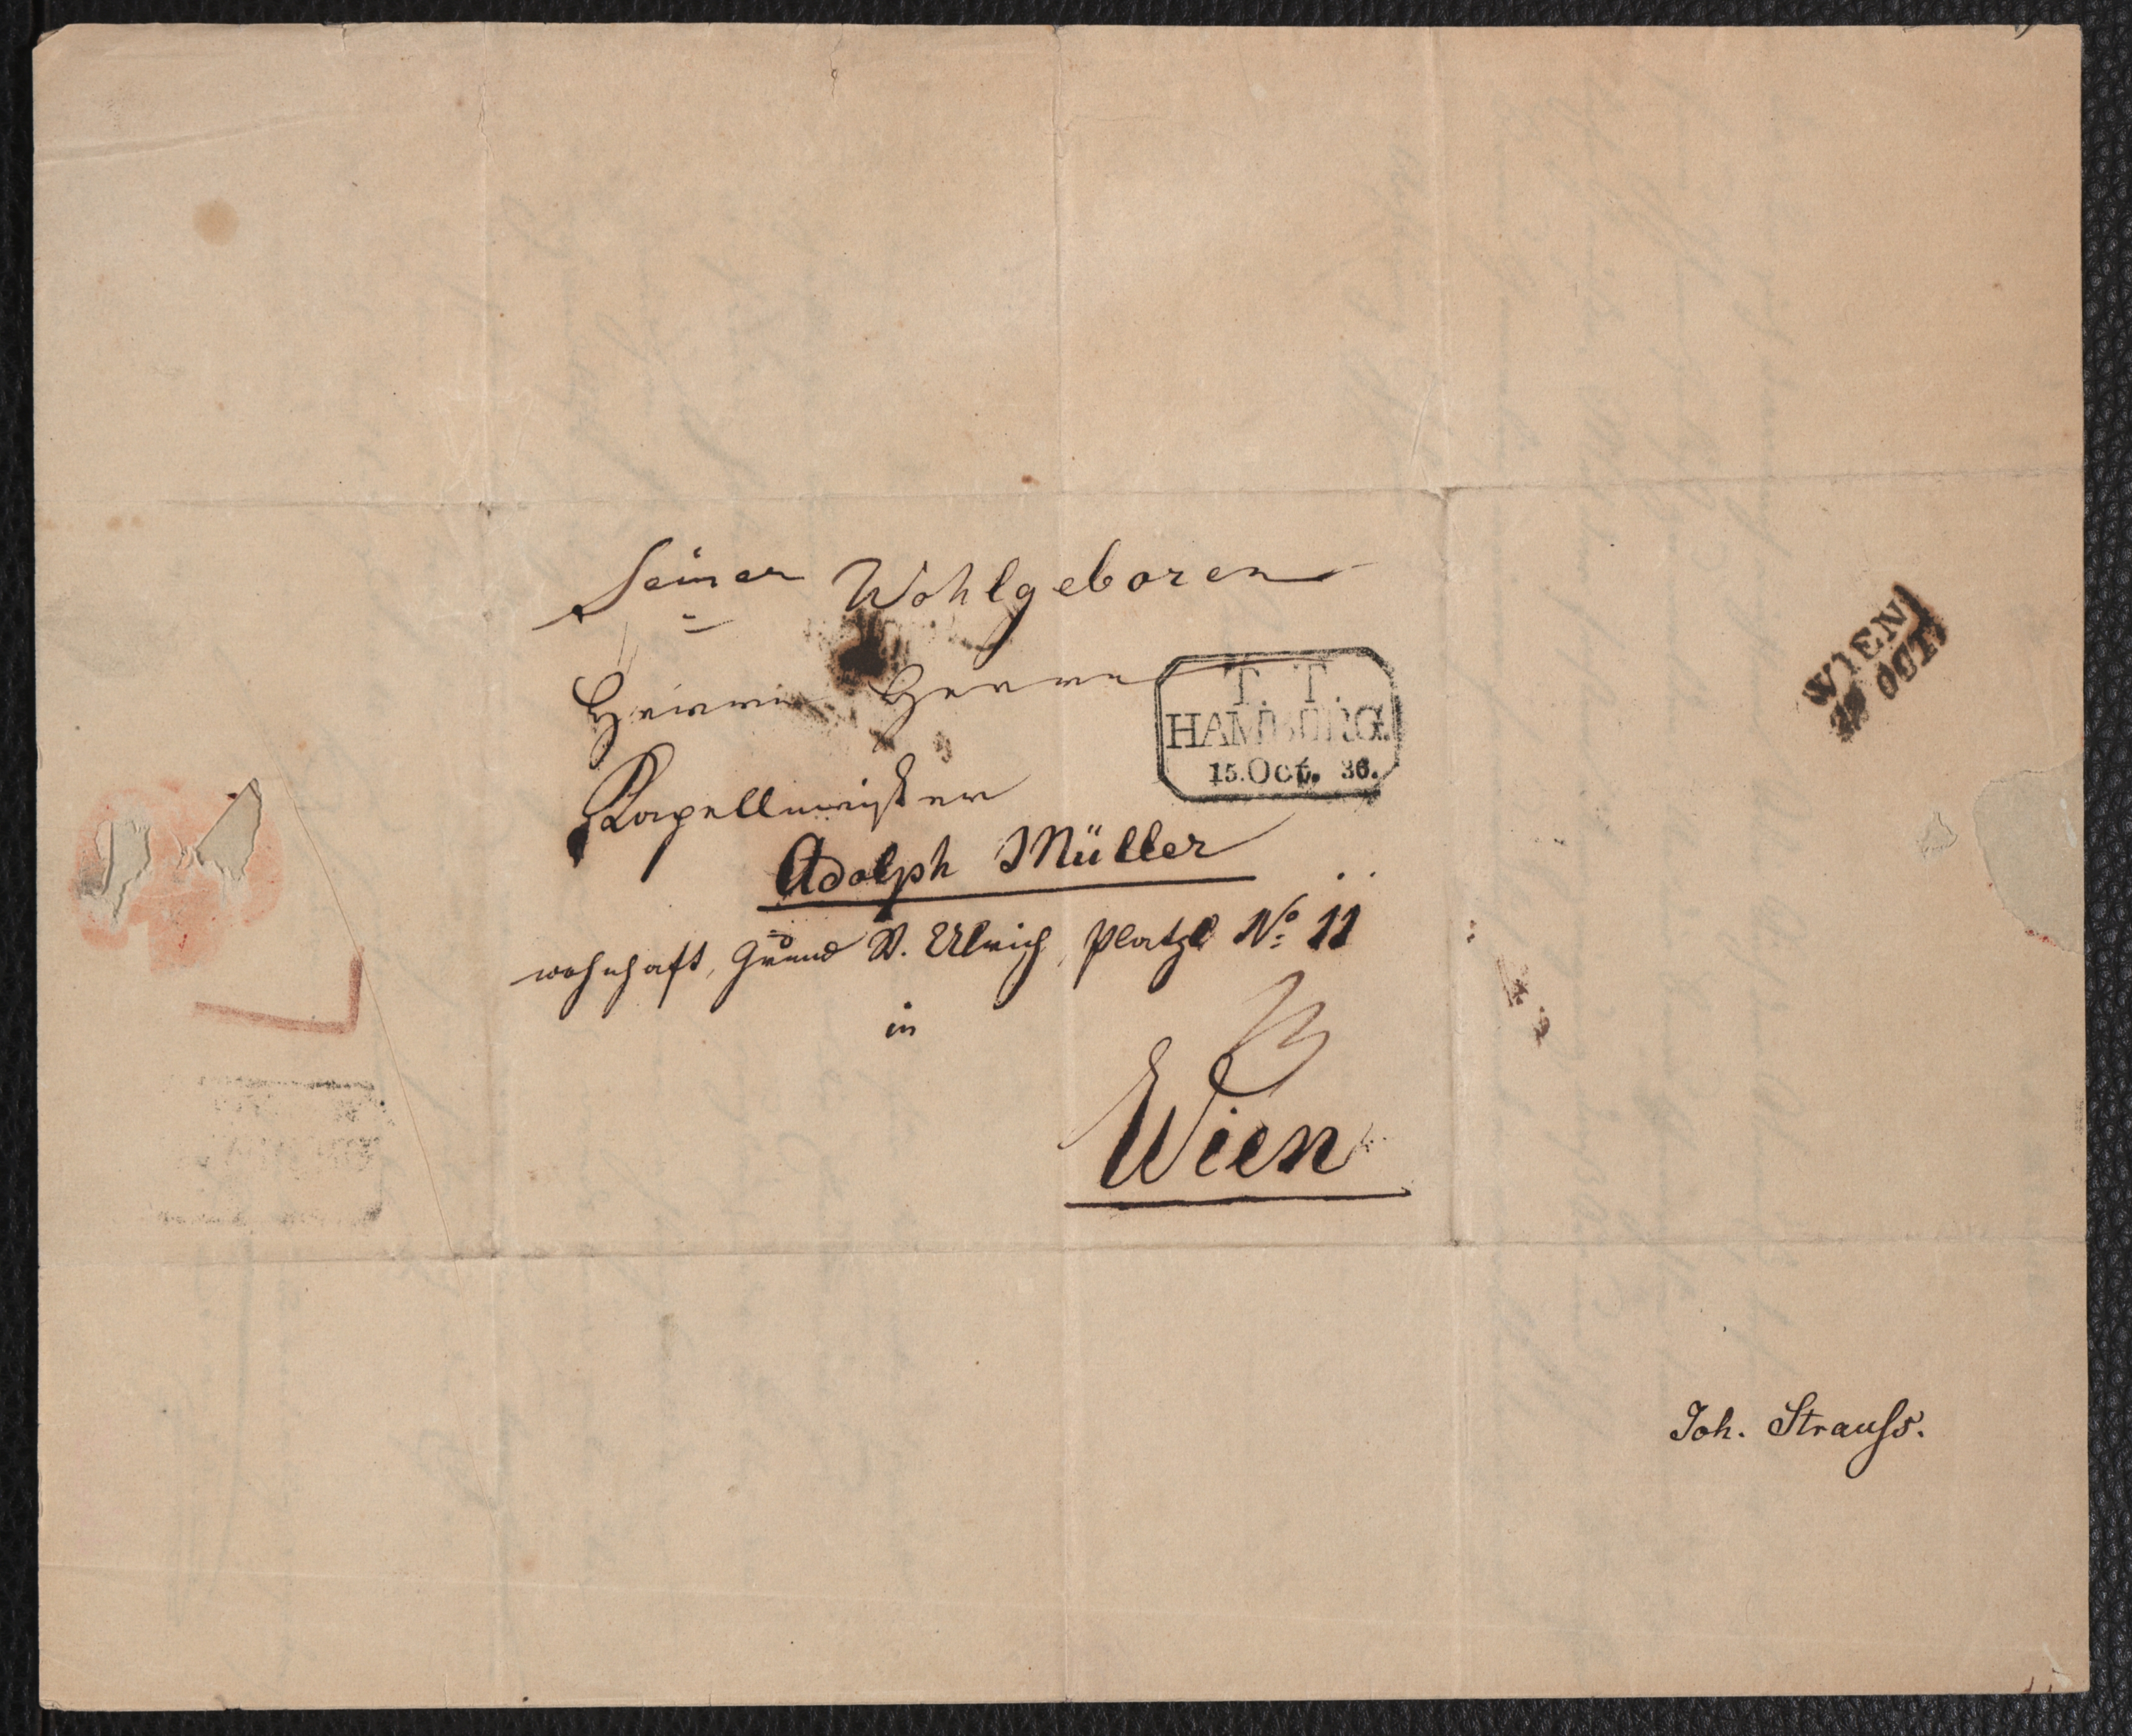 Seiner Wohlgeboren
Herrn Herrn
Kapellmeister
Adolph Müller
wohnhaft, Grund St. Ulrich, Platzl No 11
in
Wien
T. T.
HAMBURG.
15. Oct. 36.
WIEN
OCT.
Joh. Strauſs.